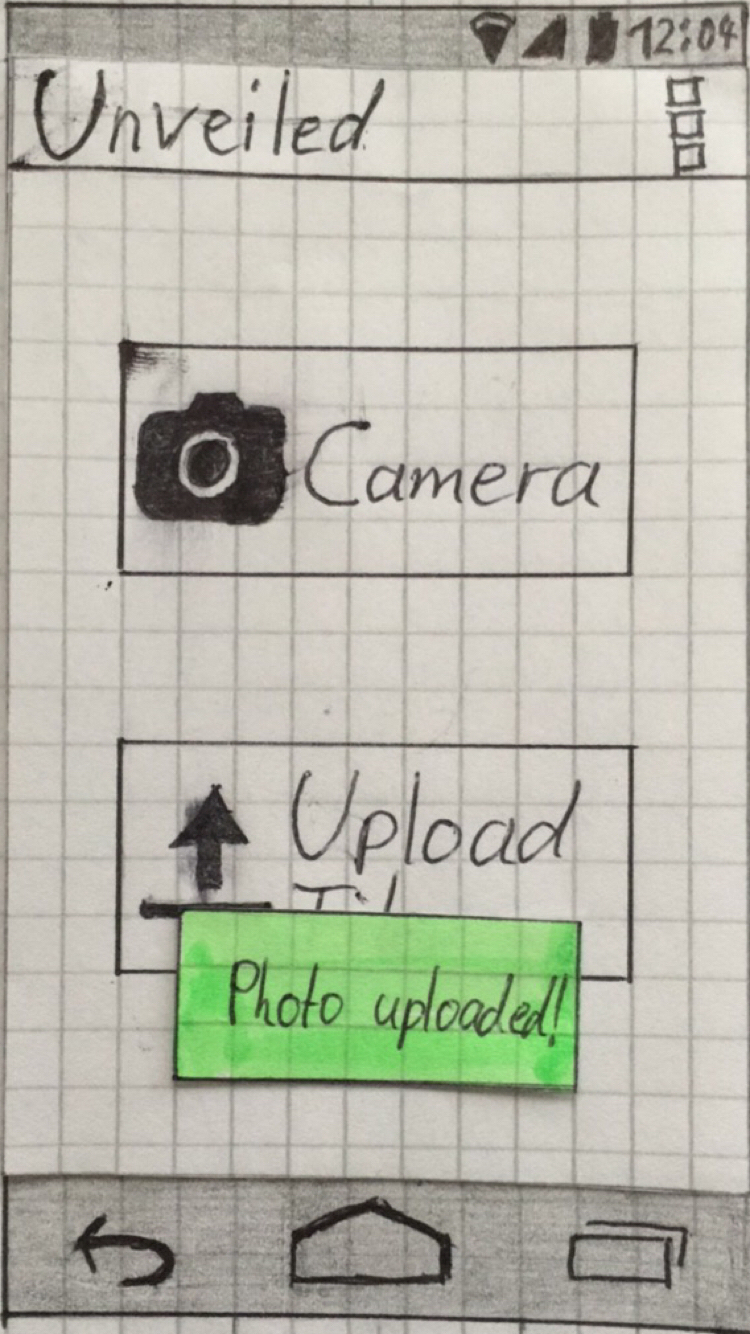 12:04
Unveiled
Camera
Upload
Photo uploaded!